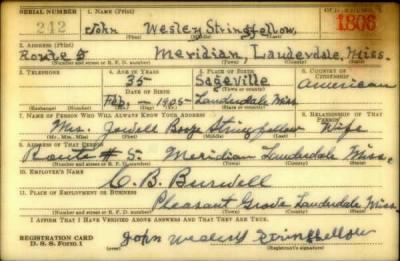 SERIAL NUMBER 1. NAME (Print) ORDER NUMBER
242 John Wesley Stringfellow, 1806
2. ADDRESS (Print)
Route 5 Meridian, Lauderdale, Miss.
(Number and street or R. F. D. number) (Town) (County) (State)
3. TELEPHONE 4. AGE IN YEARS 5. PLACE OF BIRTH 6. COUNTRY OF CITIZENSHIP
35 Sageville American
DATE OF BIRTH (Town or county)
Feb, - 1905 Lauderdale Miss
(Exchange) (Number) (Mo.) (Day) (Yr.) (State or country)
7. NAME OF PERSON WHO WILL ALWAYS KNOW YOUR ADDRESS 8. RELATIONSHIP OF THAT PERSON
Mrs. Stringfellow Wife
(Mr., Mrs., Miss) (First) (Middle) (Last)
9. ADDRESS OF THAT PERSON
Route # 5. Meridian Lauderdale Miss.
(Number and street or R. F. D. number) (Town) (County) (State)
10. EMPLOYER'S NAME
C. B. Burwell
11. PLACE OF EMPLOYMENT OR BUSINESS
Pleasant Grove Lauderdale Miss.
(Number and street or R. F. D. number) (Town) (County) (State)
I AFFIRM THAT I HAVE VERIFIED ABOVE ANSWERS AND THAT THEY ARE TRUE.
REGISTRATION CARD
D. S. S. Form 1 John Wesley Stringfellow
(Registrant's signature)